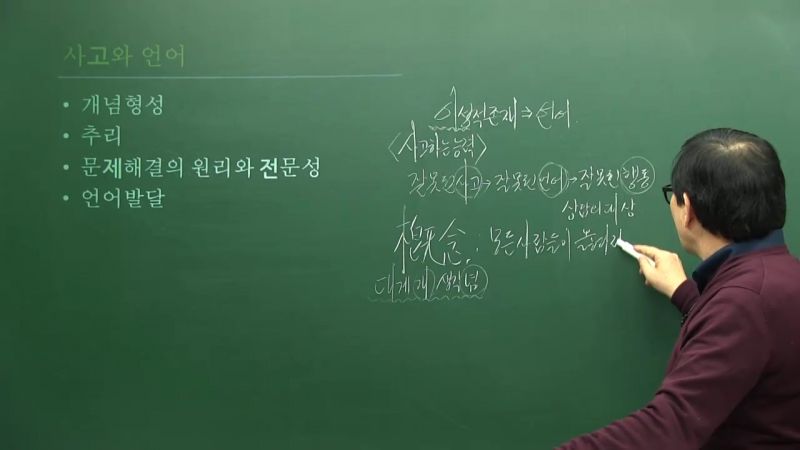 사고와 언어
• 개념형성
• 추리
• 문제해결의 원리와 전문성
• 언어발달
이성적존재 → 언어
<사고하는능력>
잘못된사고 → 잘못된언어 → 잘못된행동
상담의대상
槪念 : 모든사람들이
대게개 생각념